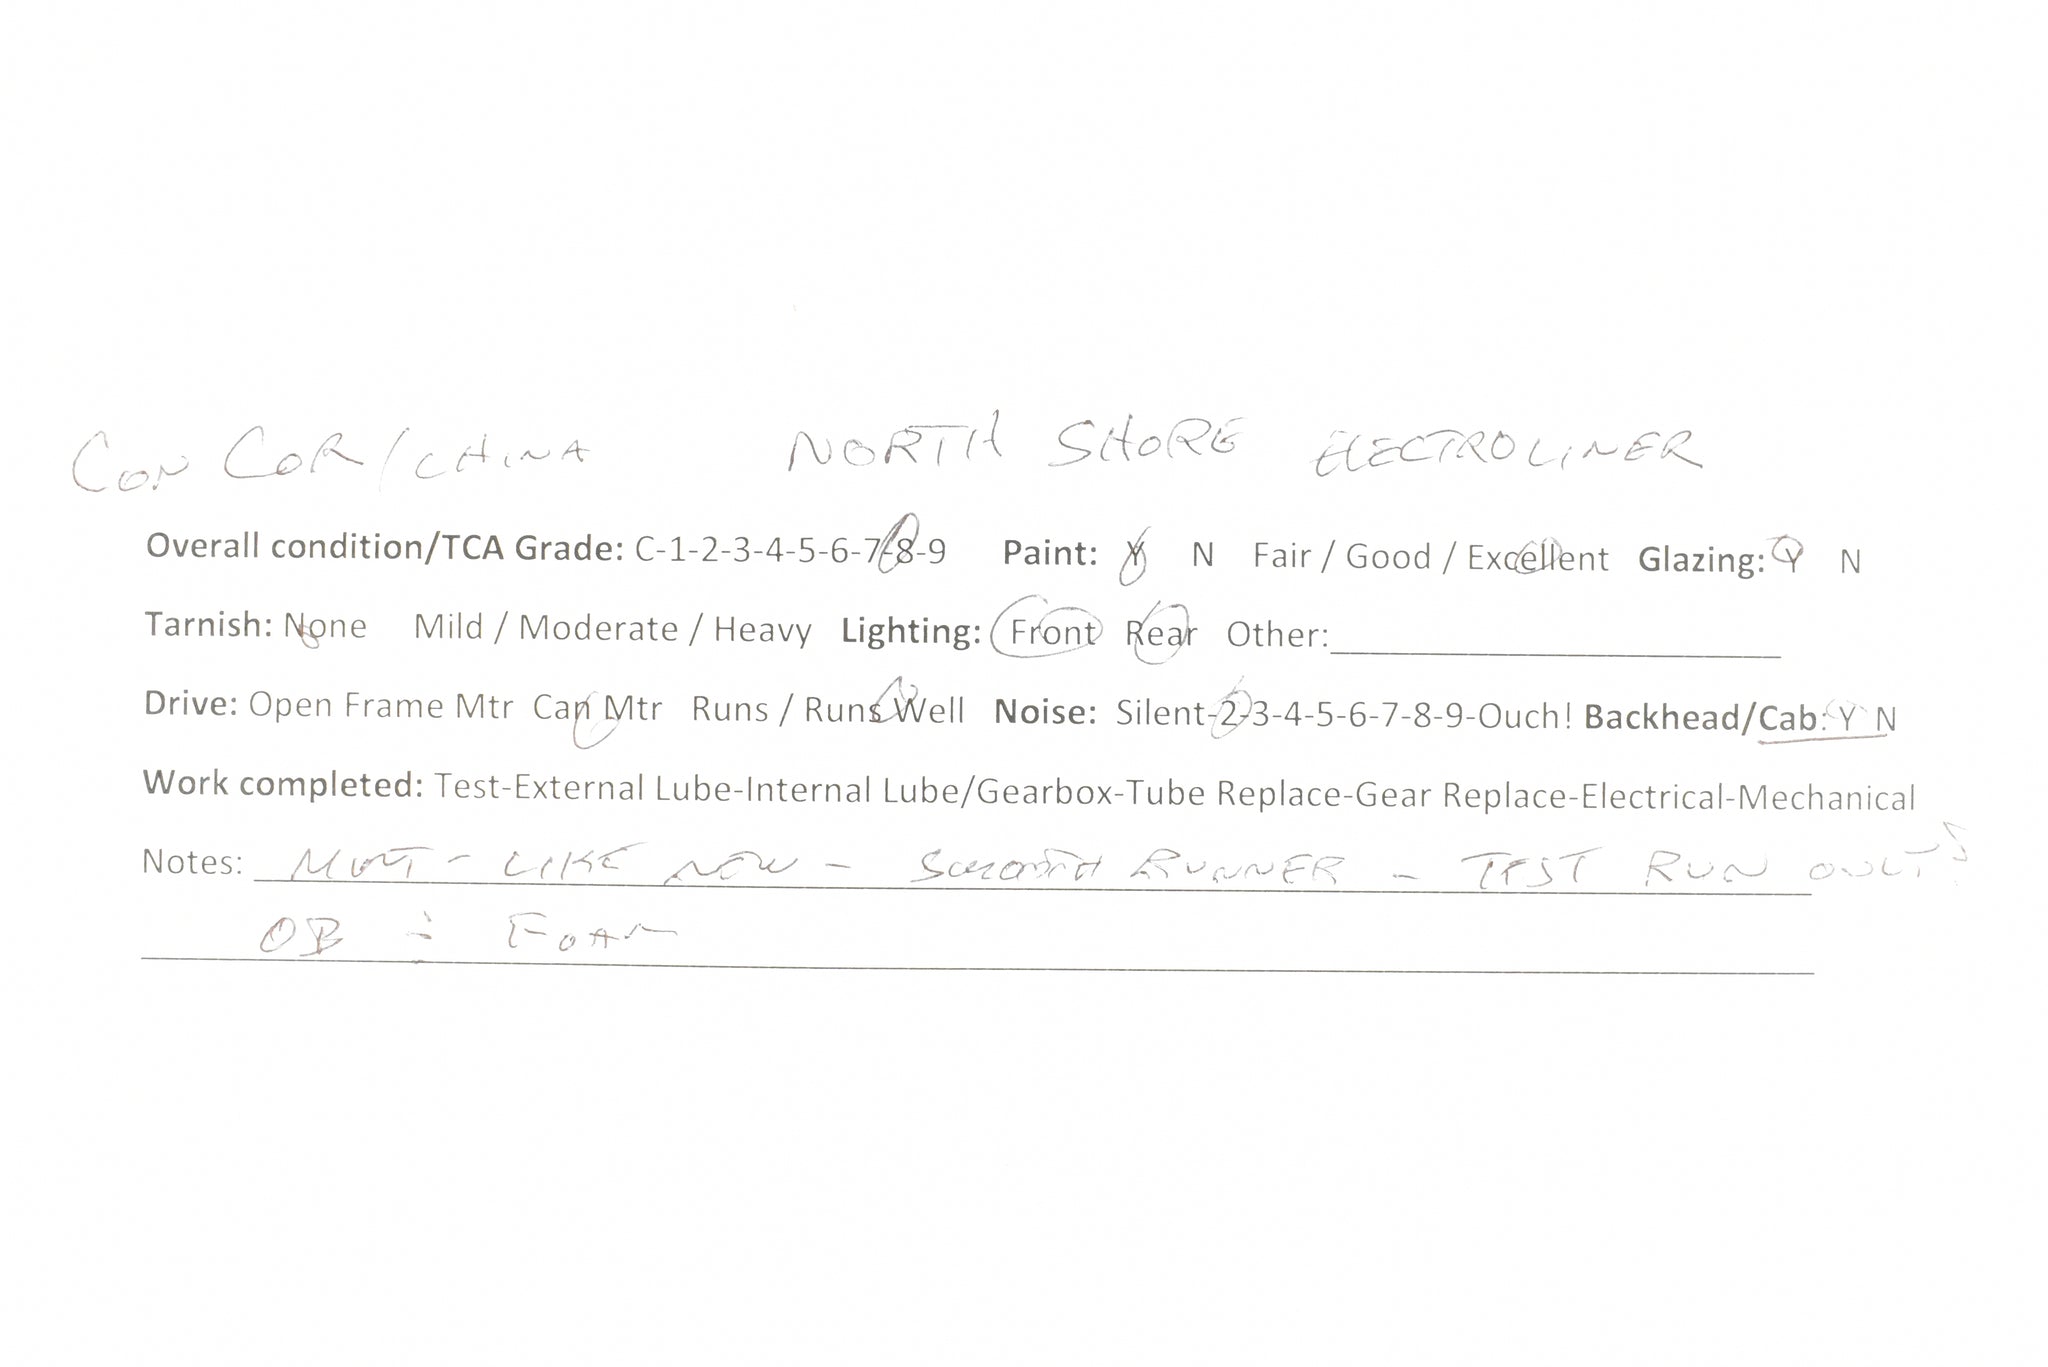 CON COR/CHINA NORTH SHORE ELECTROLINER
Overall condition/TCA Grade: C-1-2-3-4-5-6-7-8-9 Paint: Y N Fair / Good / Excellent Glazing: Y N
Tarnish: None Mild / Moderate / Heavy Lighting: Front Rear Other:
Drive: Open Frame Mtr Can Mtr Runs / Runs Well Noise: Silent-2-3-4-5-6-7-8-9-Ouch! Backhead/Cab: Y N
Work completed: Test-External Lube-Internal Lube/Gearbox-Tube Replace-Gear Replace-Electrical-Mechanical
Notes: MINT - LIKE NEW - SMOOTH RUNNER - TEST RUN ONLY
OB - FOAM